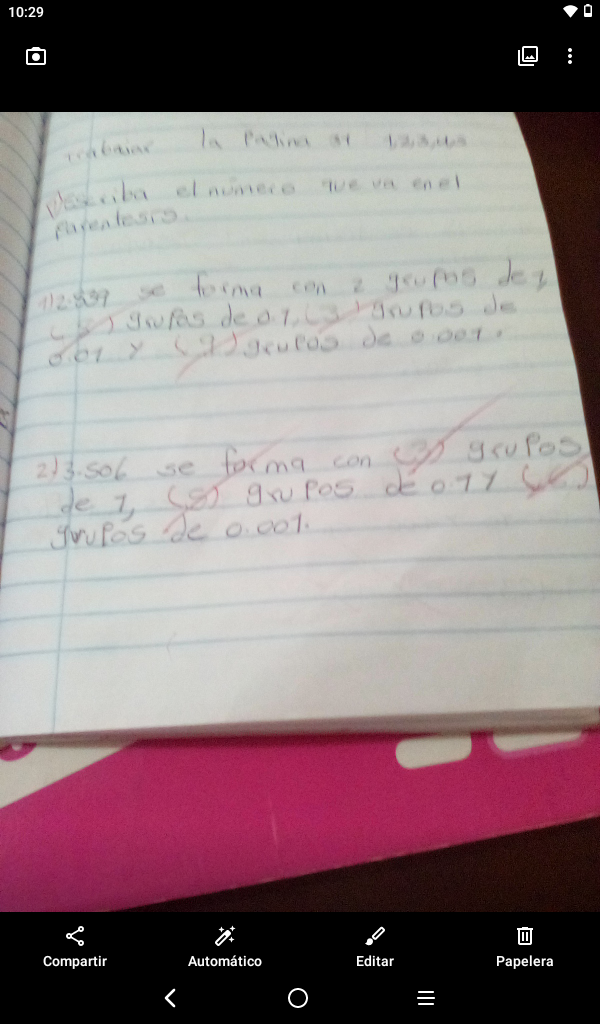 10:29
Trabajar la Página 31 1,2,3,4,5
Describa el número que va en el
parentesis.
1) 2.839 se forma con 2 grupos de 1,
( ) grupos de 0.1, (3) grupos de
0.01 y (9) grupos de 0.001.
2) 3.506 se forma con (3) grupos
de 1, (5) grupos de 0.1 y (6)
grupos de 0.001.
Compartir Automático Editar Papelera